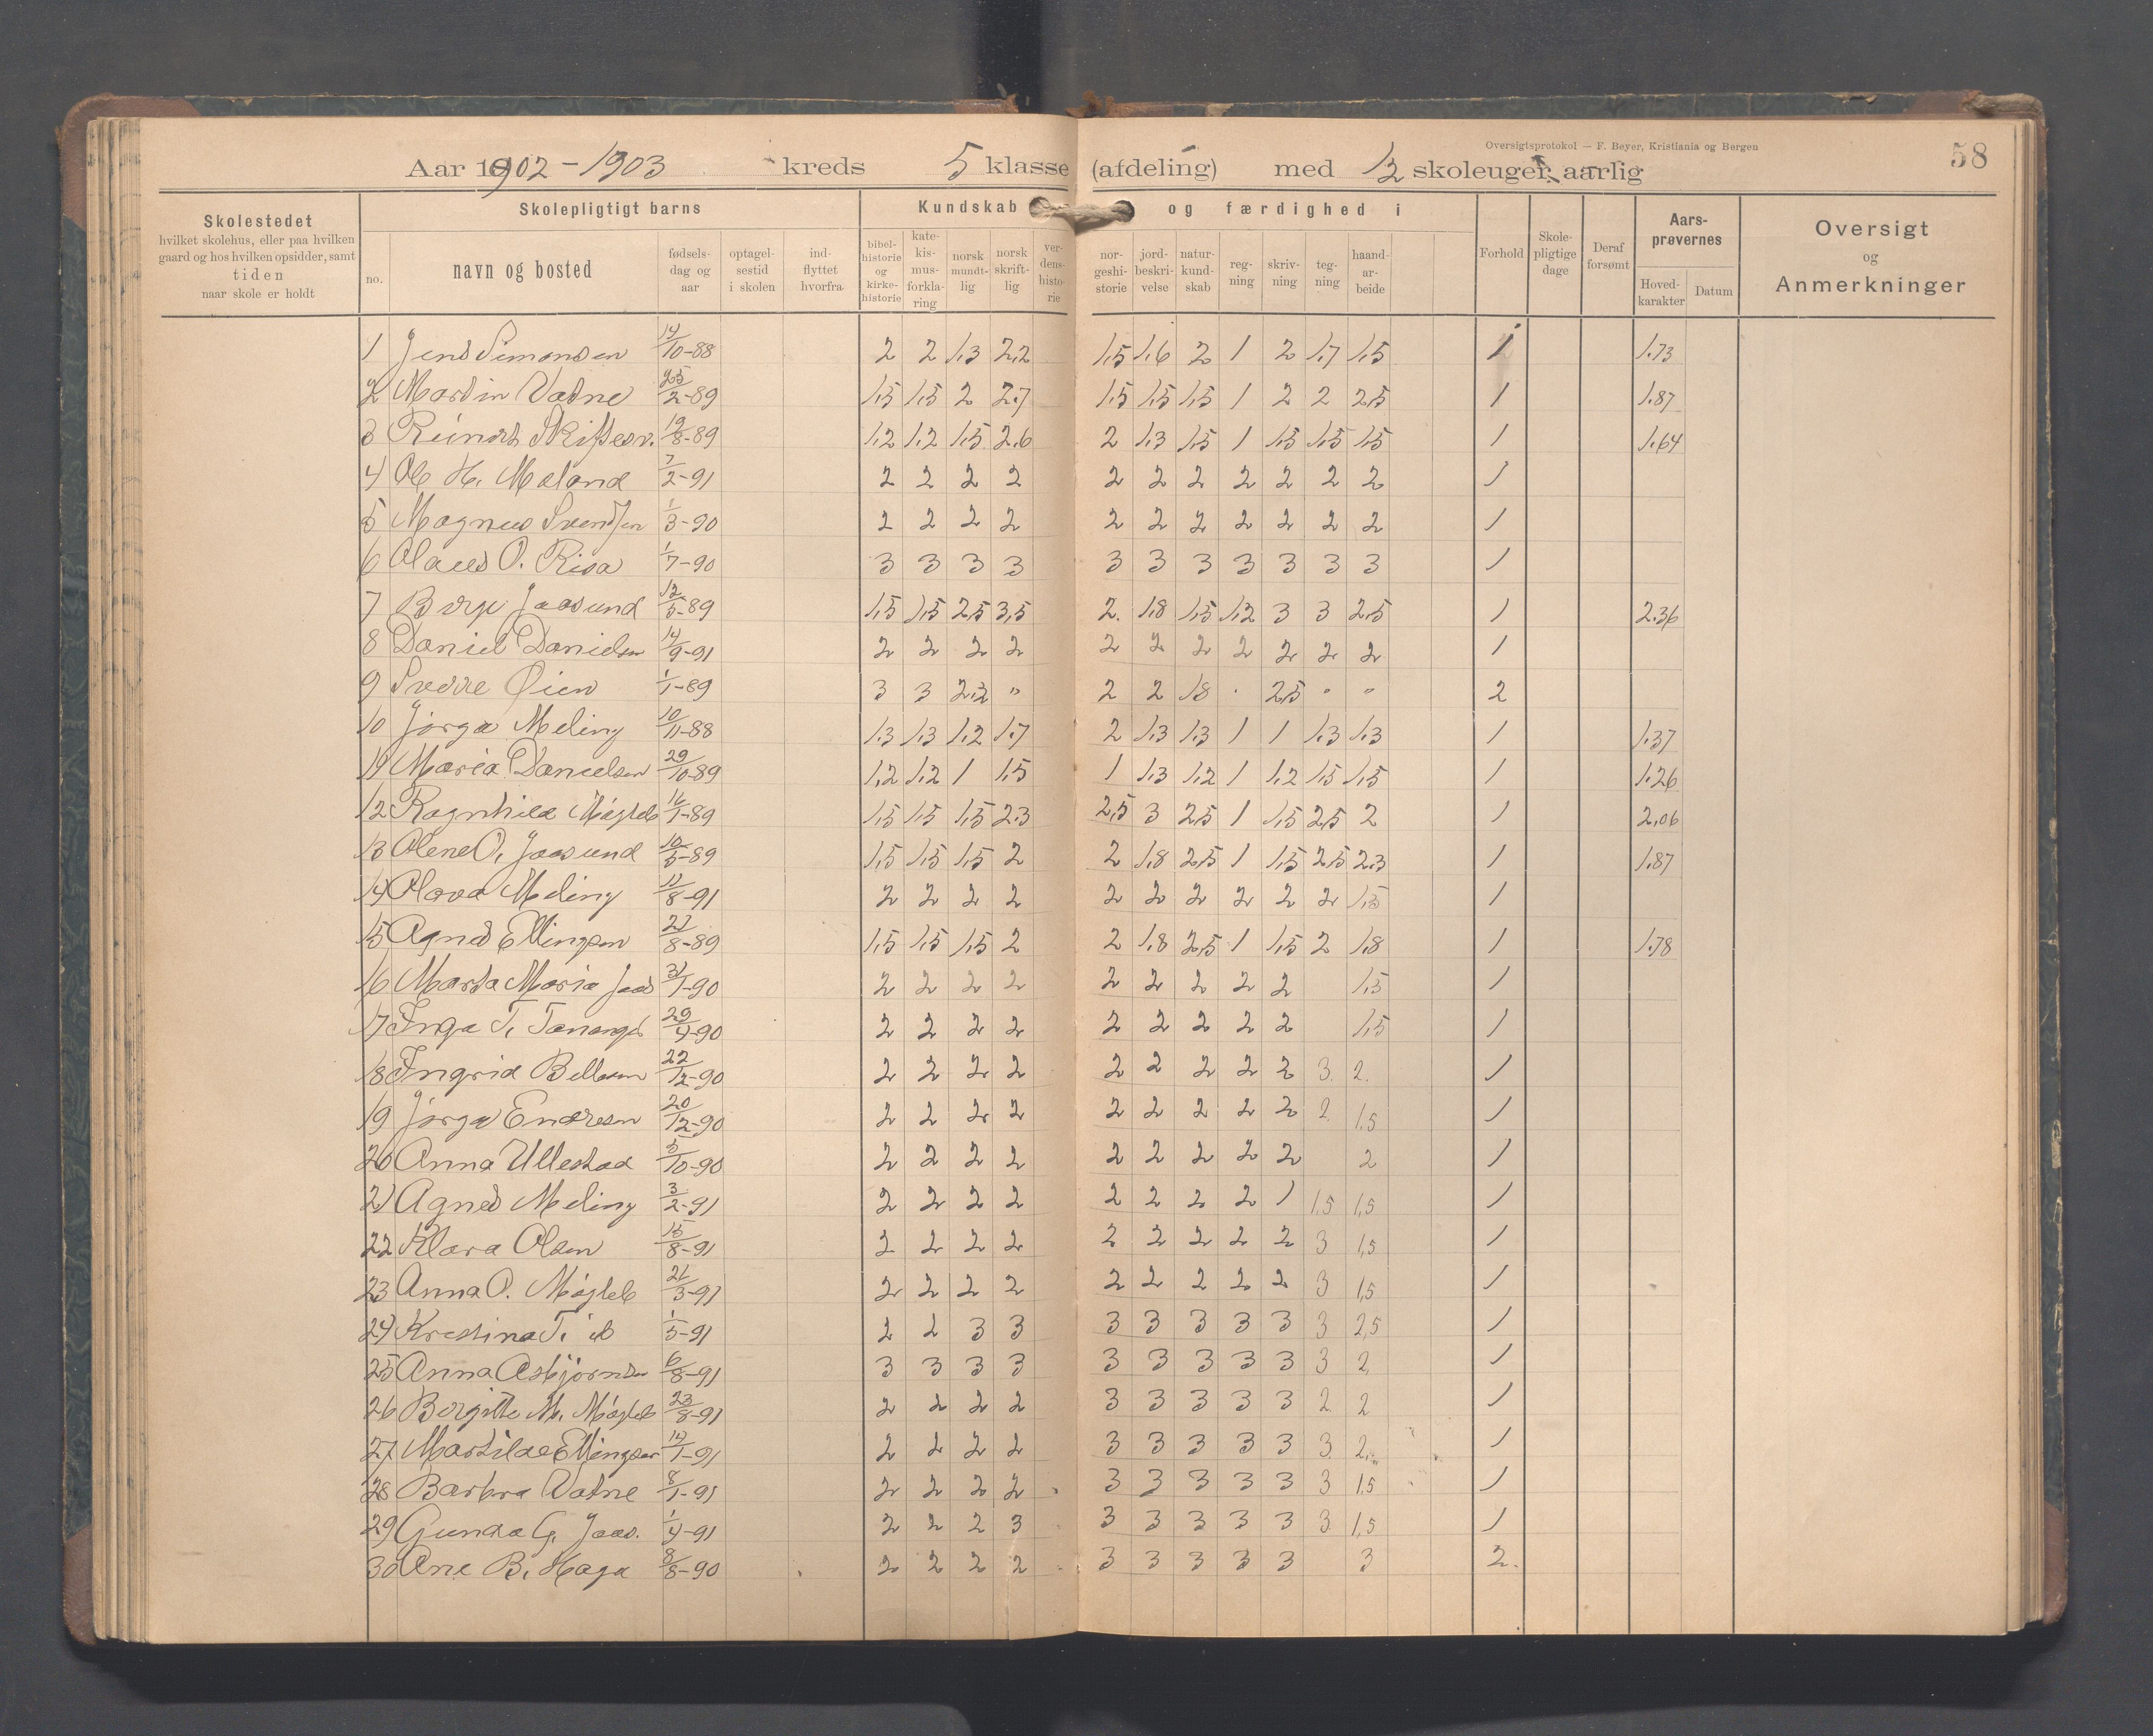 Oversigtsprotokol — F. Beyer, Kristiania og Bergen
58
Aar 1902 - 1903 kreds 5 klasse (afdeling) med 12 skoleuger aarlig
Skolestedet
hvilket skolehus, eller paa hvilken
gaard og hos hvilken opsidder, samt
tiden
naar skole er holdt
Skolepligtigt barns
no.
navn og bosted
fødsels-
dag og
aar
optagel-
sestid
i skolen
ind-
flyttet
hvorfra
Kundskab og færdighed i
bibel-
historie
og
kirke-
historie
kate-
kis-
mus-
forkla-
ring
norsk
mundt-
lig
norsk
skrift-
lig
ver-
dens-
histo-
rie
nor-
geshi-
storie
jord-
beskri-
velse
natur-
kund-
skab
reg-
ning
skriv-
ning
teg-
ning
haand-
ar-
beide
Forhold
Skole-
pligtige
dage
Deraf
forsømt
Aars-
prøvernes
Hoved-
karakter
Datum
Oversigt
og
Anmerkninger
1 Jens Simonsen 14/10-88 2 2 1,3 2,2 1,5 1,6 2 1 2 1,7 1,5 1 1.73
2 Martin Vatne 25/2-89 1,5 1,5 2 2.7 1,5 1,5 1,5 1 2 2 2,5 1 1.87
3 19/8-89 1,2 1,2 1,5 2.6 2 1,3 1,5 1 1,5 1,5 1,5 1 1.64
4 Ole H. Meland 7/2-91 2 2 2 2 2 2 2 2 2 2 2 1
5 Magnus Svendsen 1/3-90 2 2 2 2 2 2 2 2 2 2 2 1
6 O. Risa 1/7-90 3 3 3 3 3 3 3 3 3 3 3 1
7 Berge Jaasund 12/5-89 1,5 1,5 2,5 3,5 2. 1,8 1,5 1,2 3 3 2,5 1 2.36
8 Daniel Danielsen 14/9-91 2 2 2 2 2 2 2 2 2 2 2 1
9 Sverre Øien 1/1-89 3 3 2,2 " 2 2 1,8 " 2,5 " " 2
10 Jørga Meling 10/11-88 1.3 1,3 1,2 1.7 2 1,3 1,3 1 1 1,3 1,3 1 1.37
11 Maria Danielsen 29/10-89 1,2 1,2 1 1,5 1 1,3 1,2 1 1,2 1,5 1,5 1 1.26
12 Ragnhild Møgleb 16/1-89 1,5 1,5 1,5 2.3 2,5 3 2,5 1 1,5 2,5 2 1 2,06
13 Olene O. Jaasund 10/5-89 1,5 1,5 1,5 2 2 1,8 2,5 1 1,5 2,5 2.3 1 1.87
14 Olava Meling 11/8-91 2 2 2 2 2 2 2 2 2 2 1,5 1
15 Agnes Ellingsen 21/8-89 1,5 1,5 1,5 2 2 1,8 2,5 1 1,5 2 1.8 1 1.78
16 Marta Maria Jaas 31/1-90 2 2 2 2 2 2 2 2 2 1,5 1
17 Inga T. Tananger 29/4-90 2 2 2 2 2 2 2 2 2 1,5 1
18 Ingrid 22/12-90 2 2 2 2 2 2 2 2 2 3. 2. 1
19 Jørga Endresen 20/12-90 2 2 2 2 2 2 2 2 2 2. 1,5 1
20 Anna Ullestad 5/10-90 2 2 2 2 2 2 2 2 2 2 1
21 Agnes Meling 3/2-91 2 2 2 2 2 2 2 2 1 1,5 1,5 1
22 Klara Olsen 15/8-91 2 2 2 2 2 2 2 2 2 3 1,5 1
23 Anna O. Møgleb 21/3-91 2 2 2 2 2 2 2 2 2 3 1,5 1
24 Kristina T. 1/5-91 2 2 3 3 3 3 3 3 3 3 2,5 1
25 Anna Asbjørnsen 6/8-91 3 3 3 3 3 3 3 3 3 3 2, 1
26 Bergitte M. Møgleb 23/8-91 2 2 2 2 3 3 3 3 3 2 2 1
27 Ellingsen 14/1-91 2 2 2 2 3 3 3 3 3 3. 2. 1
28 Barbra Vatne 8/1-91 2 2 2 2 3 3 3 3 3 3 1,5 1
29 Gunda G. Jaas. 1/4-91 2 2 2 3 3 3 3 3 3 3 1,5 1
30 Ane B. Haga 8/8-90 2 2 2 2 3 3 3 3 3 3 2.